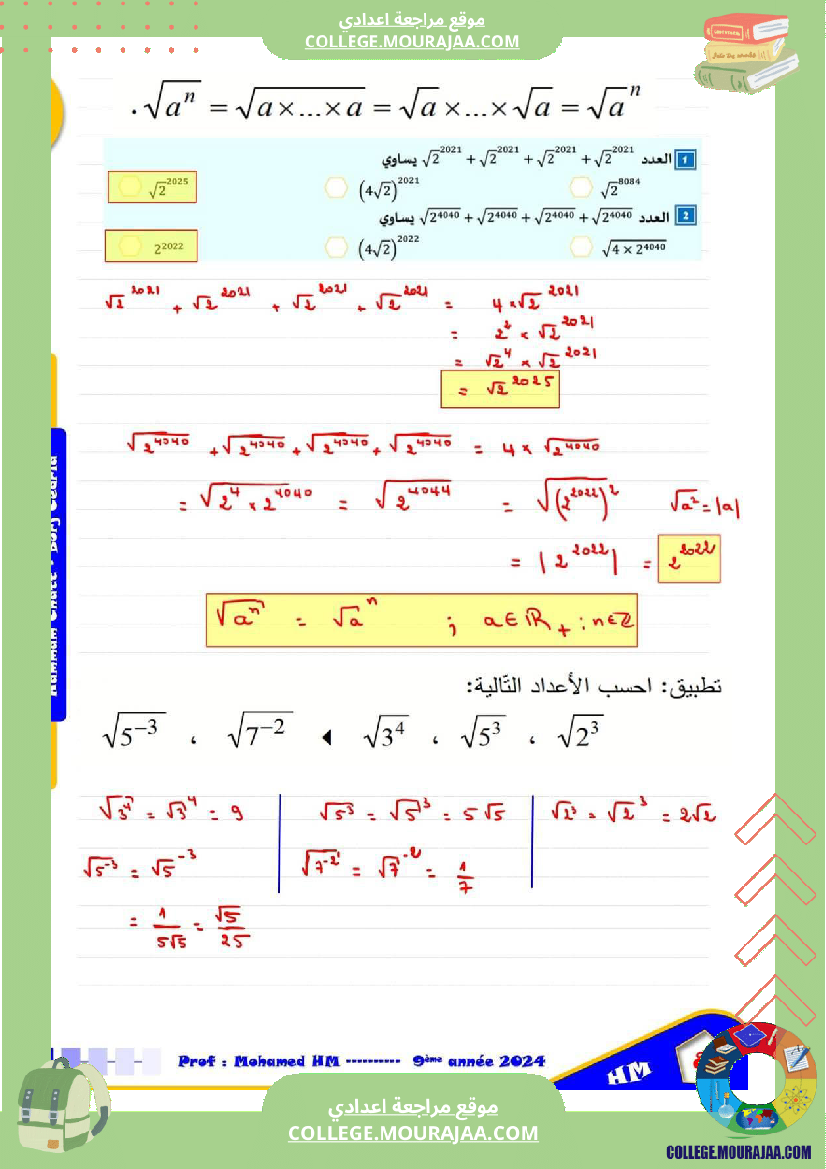 موقع مراجعة اعدادي
COLLEGE.MOURAJAA.COM
. √(aⁿ) = √(a×...×a) = √a×...×√a = √aⁿ
1 العدد √2²⁰²¹ + √2²⁰²¹ + √2²⁰²¹ + √2²⁰²¹ يساوي
√2²⁰²⁵ (4√2)²⁰²¹ √2⁸⁰⁸⁴
2 العدد √(2⁴⁰⁴⁰) + √(2⁴⁰⁴⁰) + √(2⁴⁰⁴⁰) + √(2⁴⁰⁴⁰) يساوي
2²⁰²² (4√2)²⁰²² √(4 × 2⁴⁰⁴⁰)
√2²⁰²¹ + √2²⁰²¹ + √2²⁰²¹ + √2²⁰²¹ = 4×√2²⁰²¹
= 2² × √2²⁰²¹
= √2⁴ × √2²⁰²¹
= √2²⁰²⁵
√(2⁴⁰⁴⁰) + √(2⁴⁰⁴⁰) + √(2⁴⁰⁴⁰) + √(2⁴⁰⁴⁰) = 4 × √(2⁴⁰⁴⁰)
= √(2⁴ × 2⁴⁰⁴⁰) = √(2⁴⁰⁴⁴) = √((2²⁰²²)²) √a² = |a|
= |2²⁰²²| = 2²⁰²²
√(aⁿ) = √aⁿ ; a∈ℝ₊ ; n∈ℤ
تطبيق: احسب الأعداد التّالية:
√(5⁻³) ، √(7⁻²) ◄ √(3⁴) ، √(5³) ، √(2³)
√(3⁴) = √3⁴ = 9 √(5³) = √5³ = 5√5 √(2³) = √2³ = 2√2
√(5⁻³) = √5⁻³ √(7⁻²) = √7⁻² = 1/7
= 1/(5√5) = √5/25
Prof : Mohamed HM ---------- 9ème année 2024
HM
موقع مراجعة اعدادي
COLLEGE.MOURAJAA.COM
COLLEGE.MOURAJAA.COM